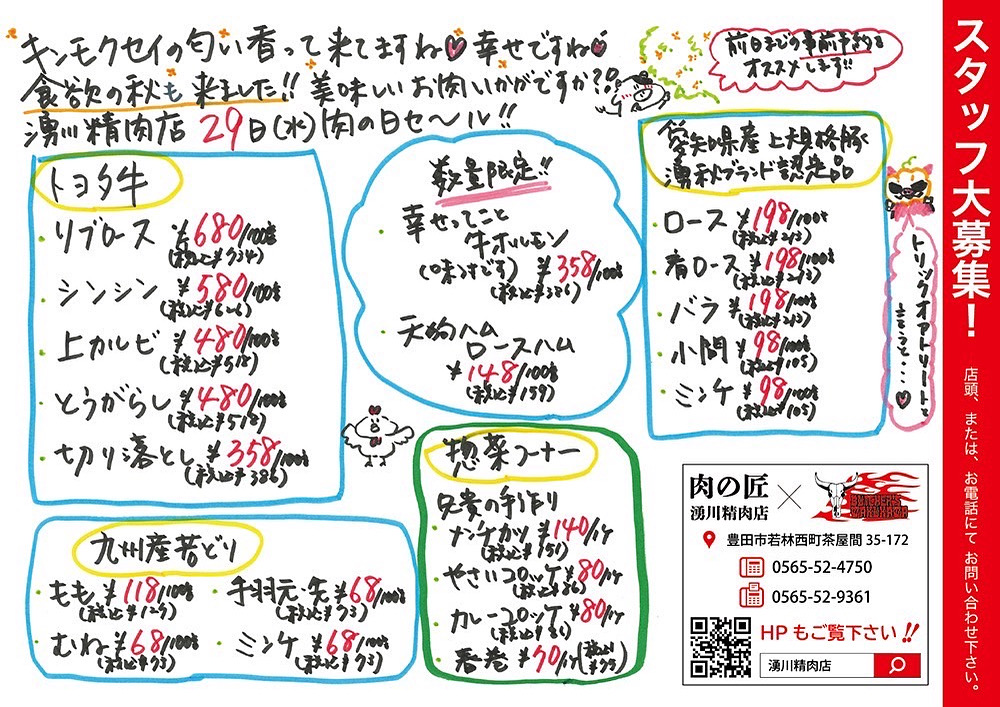 キンモクセイの匂い香って来てますね 幸せですね
食欲の秋も来ました!! 美味しいお肉いかがですか?
湧川精肉店 29日(水)肉の日セール!!
前日までの事前予約を
オススメします!!
トヨタ牛
リブロース ¥680/100g
(税込¥734)
シンシン ¥580/100g
(税込¥626)
上カルビ ¥480/100g
(税込¥518)
とうがらし ¥480/100g
(税込¥518)
切り落とし ¥358/100g
(税込¥386)
数量限定!!
幸せってこと
牛ホルモン
(味つきです) ¥358/100g
(税込¥386)
天狗ハム
ロースハム
¥148/100g
(税込¥159)
愛知県産 上規格豚
湧秋ブランド認定品
ロース ¥198/100g
(税込¥213)
肩ロース ¥198/100g
(税込¥213)
バラ ¥198/100g
(税込¥213)
小間 ¥98/100g
(税込¥105)
ミンチ ¥98/100g
(税込¥105)
トリックオアトリートと
言うと…
九州産若どり
もも ¥118/100g
(税込¥127)
むね ¥68/100g
(税込¥73)
手羽元・先 ¥68/100g
(税込¥73)
ミンチ ¥68/100g
(税込¥73)
惣菜コーナー
兄貴の手作り
メンチカツ ¥140/1ケ
(税込¥151)
やさいコロッケ ¥80/1ケ
(税込¥86)
カレーコロッケ ¥80/1ケ
(税込¥86)
春巻 ¥70/1ケ(税込¥75)
肉の匠
湧川精肉店
×
BUTCHER'S
WAKUKAWA
豊田市若林西町茶屋間 35-172
0565-52-4750
0565-52-9361
HP もご覧下さい!!
湧川精肉店
スタッフ大募集!
店頭、または、お電話にてお問い合わせ下さい。